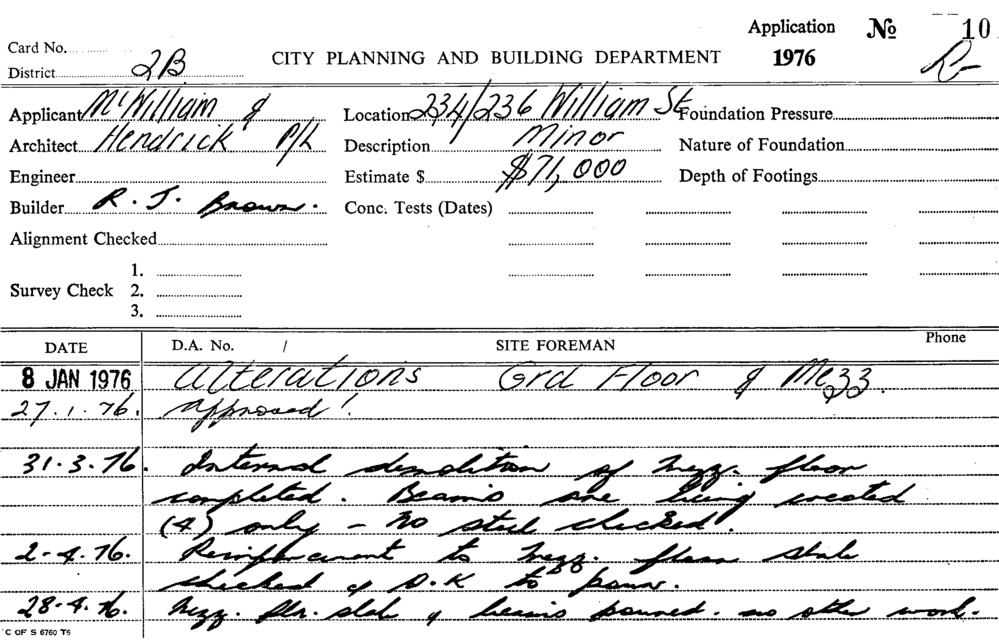 Application No 10
Card No.
CITY PLANNING AND BUILDING DEPARTMENT 1976 R-
District 2B
Applicant McWilliam & Location 234/236 William St Foundation Pressure
Architect Hendrick P/L Description Minor Nature of Foundation
Engineer Estimate $ $71,000 Depth of Footings
Builder R. J. Brown. Conc. Tests (Dates)
Alignment Checked
1.
Survey Check 2.
3.
DATE D.A. No. / SITE FOREMAN Phone
8 JAN 1976 Alterations Grd Floor & Mezz.
27.1.76. approved!
31.3.76. Internal demolition of mezz. floor
completed. Beams are being erected
(4) only - no steel checked.
2-4.76. Reinforcement to mezz. floor slab
checked & O.K to pour.
28-4.76. Mezz. flr. slab & beams poured. no other work.
C OF S 6760 T6